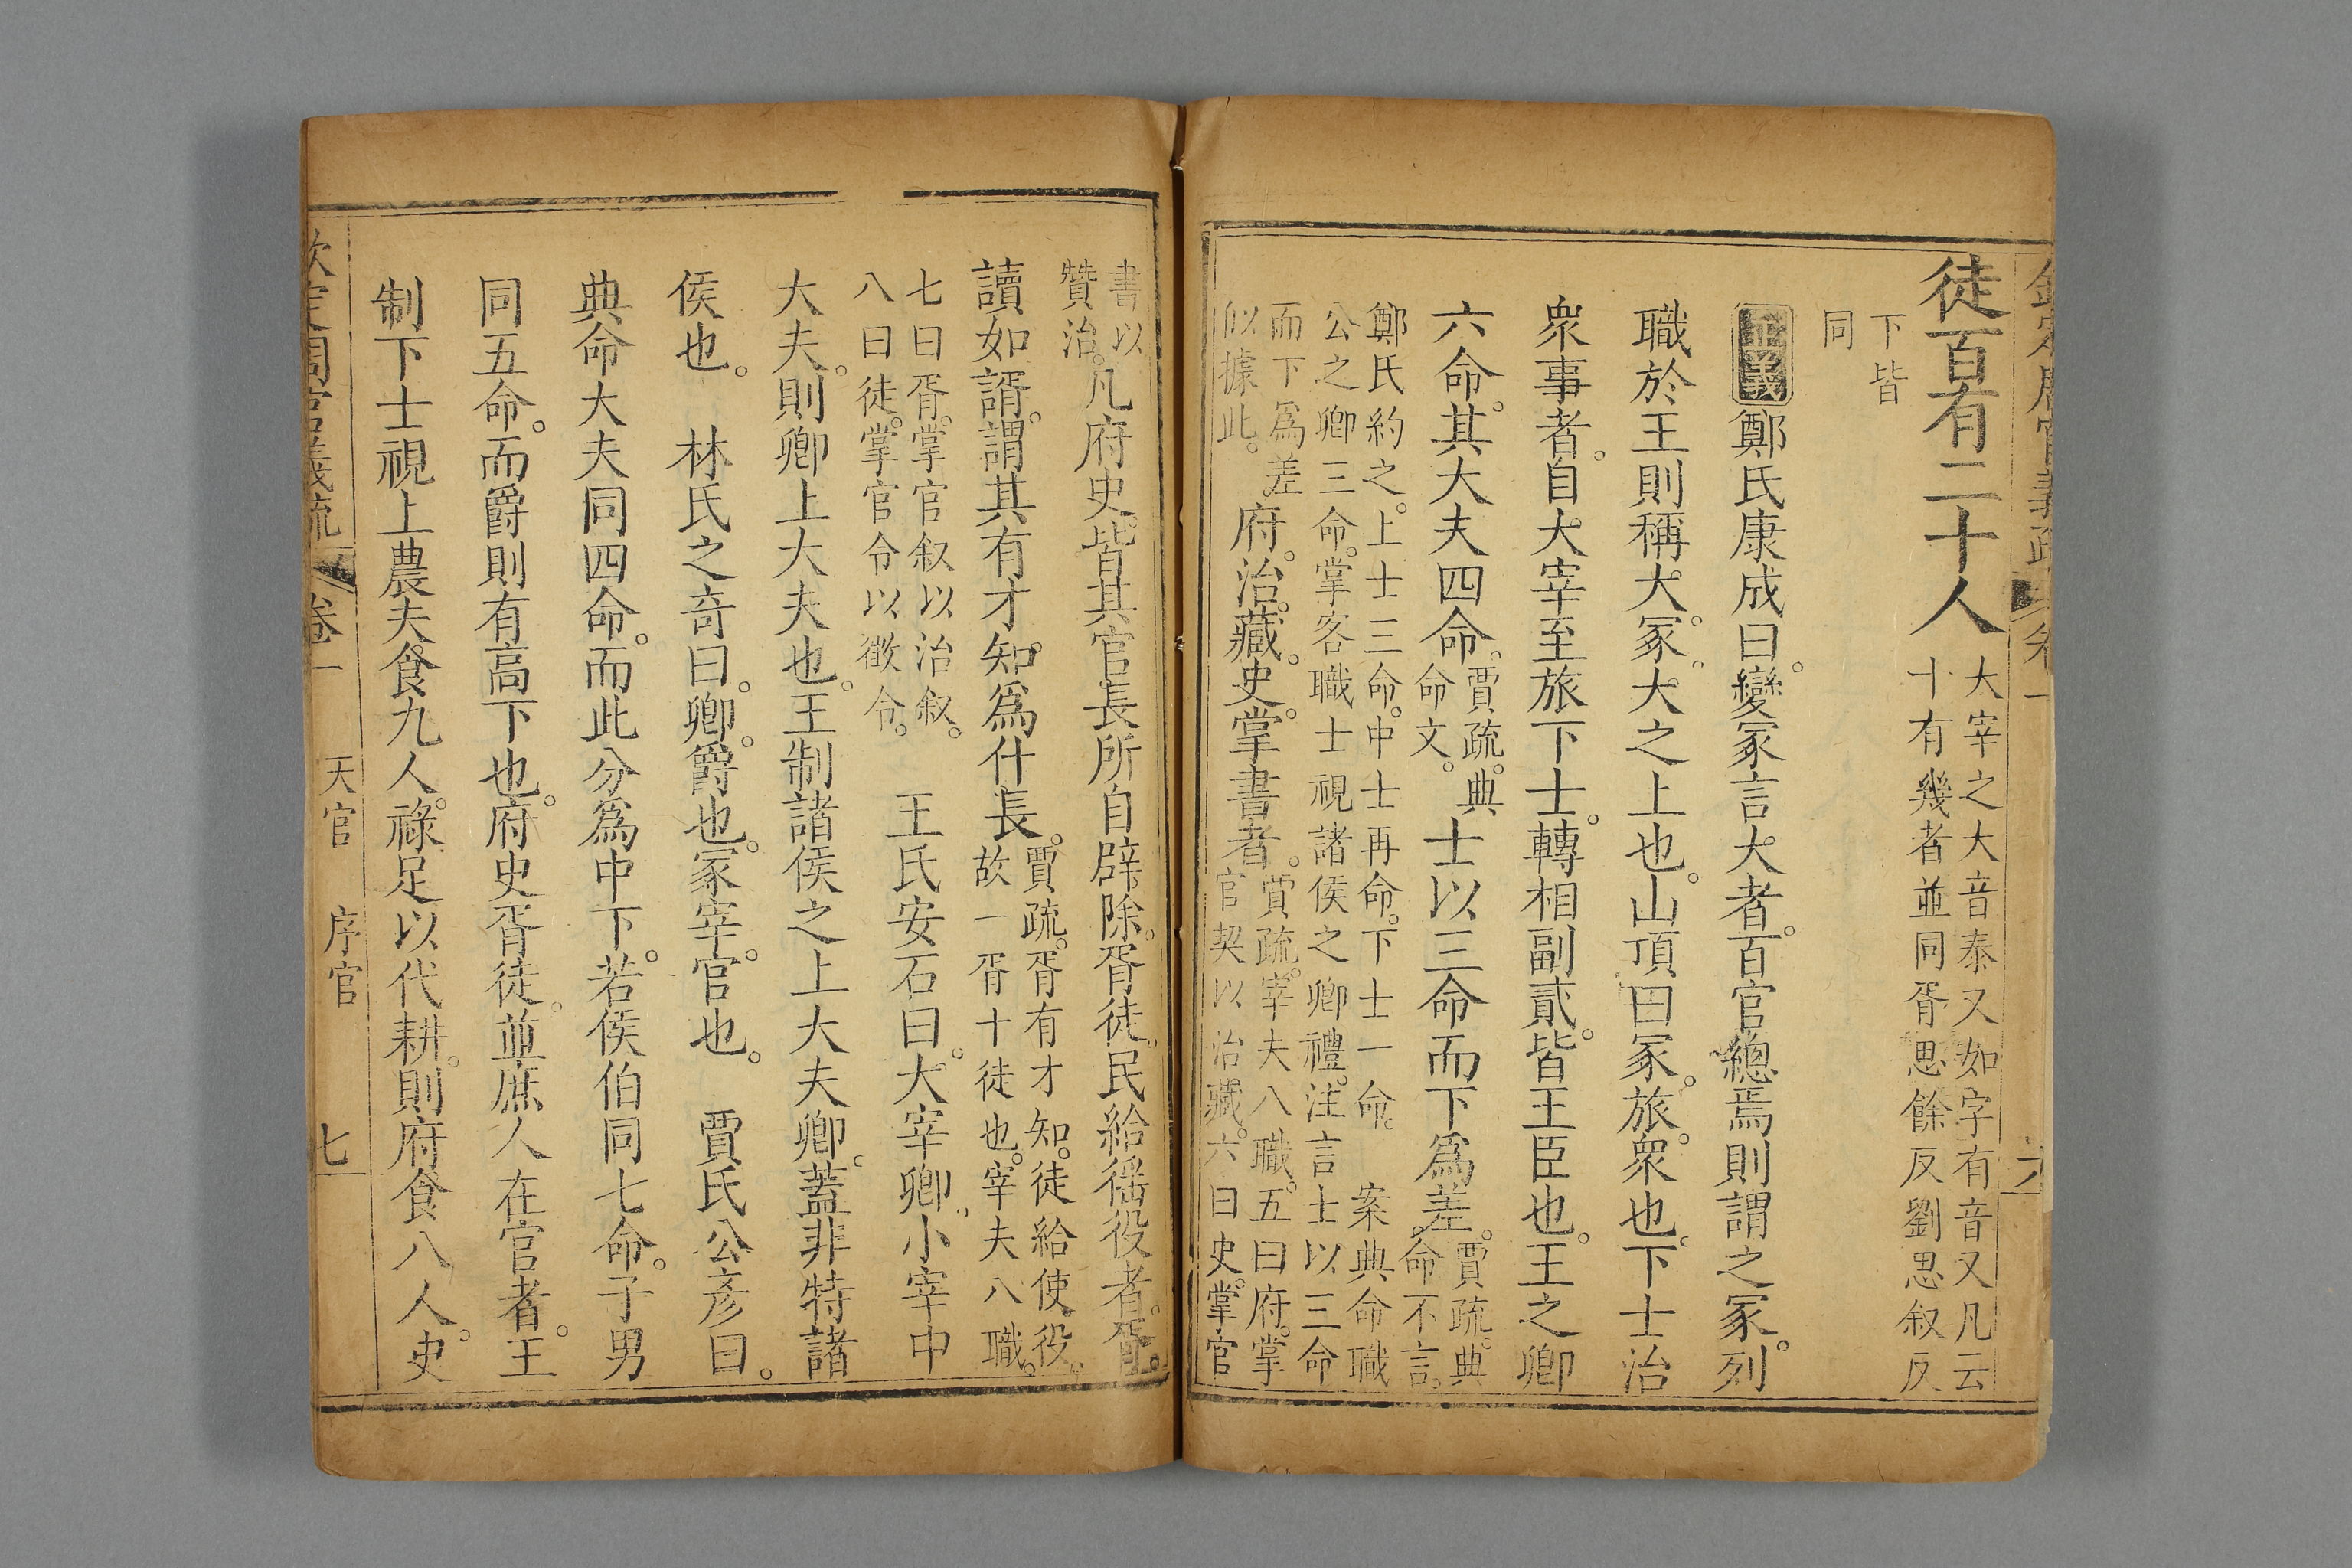 欽定周官義疏 卷一 六
徒百有二十人
大宰之大音泰又如字有音又凡云
十有幾者並同胥思餘反劉思叙反
下皆
同
正義鄭氏康成曰。變冢言大者。百官總焉則謂之冢。列
職於王則稱大。冢。大之上也。山頂曰冢。旅。衆也。下士治
衆事者。自大宰至旅下士。轉相副貳。皆王臣也。王之卿
六命。其大夫四命。
賈疏。典
命文。
士以三命而下爲差。
賈疏。典
命不言。
鄭氏約之。上士三命。中士再命。下士一命。 案典命職
公之卿三命。掌客職士視諸侯之卿禮。注言士以三命
而下爲差。
似據此。
府。治藏。史。掌書者。
賈疏。宰夫八職。五曰府。掌
官契以治藏。六曰史。掌官
書以
贊治。
凡府史。皆其官長所自辟除。胥徒。民給徭役者。胥。
讀如諝。謂其有才知。爲什長。
賈疏。胥有才知。徒給使役。
故一胥十徒也。宰夫八職。
七曰胥。掌官叙以治叙。
八曰徒。掌官令以徵令。
王氏安石曰。大宰卿。小宰中
大夫。則卿上大夫也。王制諸侯之上大夫卿。蓋非特諸
侯也。 林氏之奇曰。卿。爵也。冢宰。官也。 賈氏公彥曰。
典命大夫同四命。而此分爲中下。若侯伯同七命。子男
同五命。而爵則有高下也。府史胥徒。並庶人在官者。王
制下士視上農夫食九人。祿足以代耕。則府食八人。史
欽定周官義疏 卷一 天官 序官 七